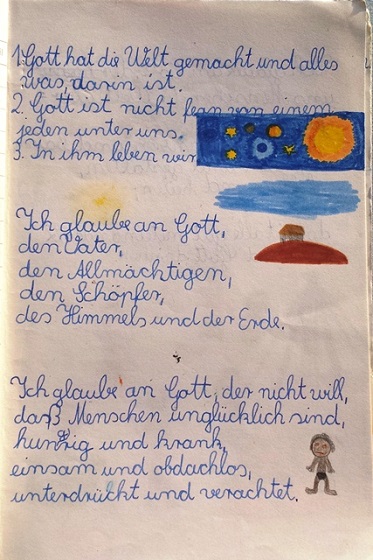 1. Gott hat die Welt gemacht und alles
was, darin ist.
2. Gott ist nicht fern von einem
jeden unter uns.
3. In ihm leben wir
Ich glaube an Gott,
den Vater,
den Allmächtigen,
den Schöpfer,
des Himmels und der Erde.
Ich glaube an Gott, der nicht will,
daß Menschen unglücklich sind,
hungrig und krank,
einsam und obdachlos,
unterdrückt und verachtet.